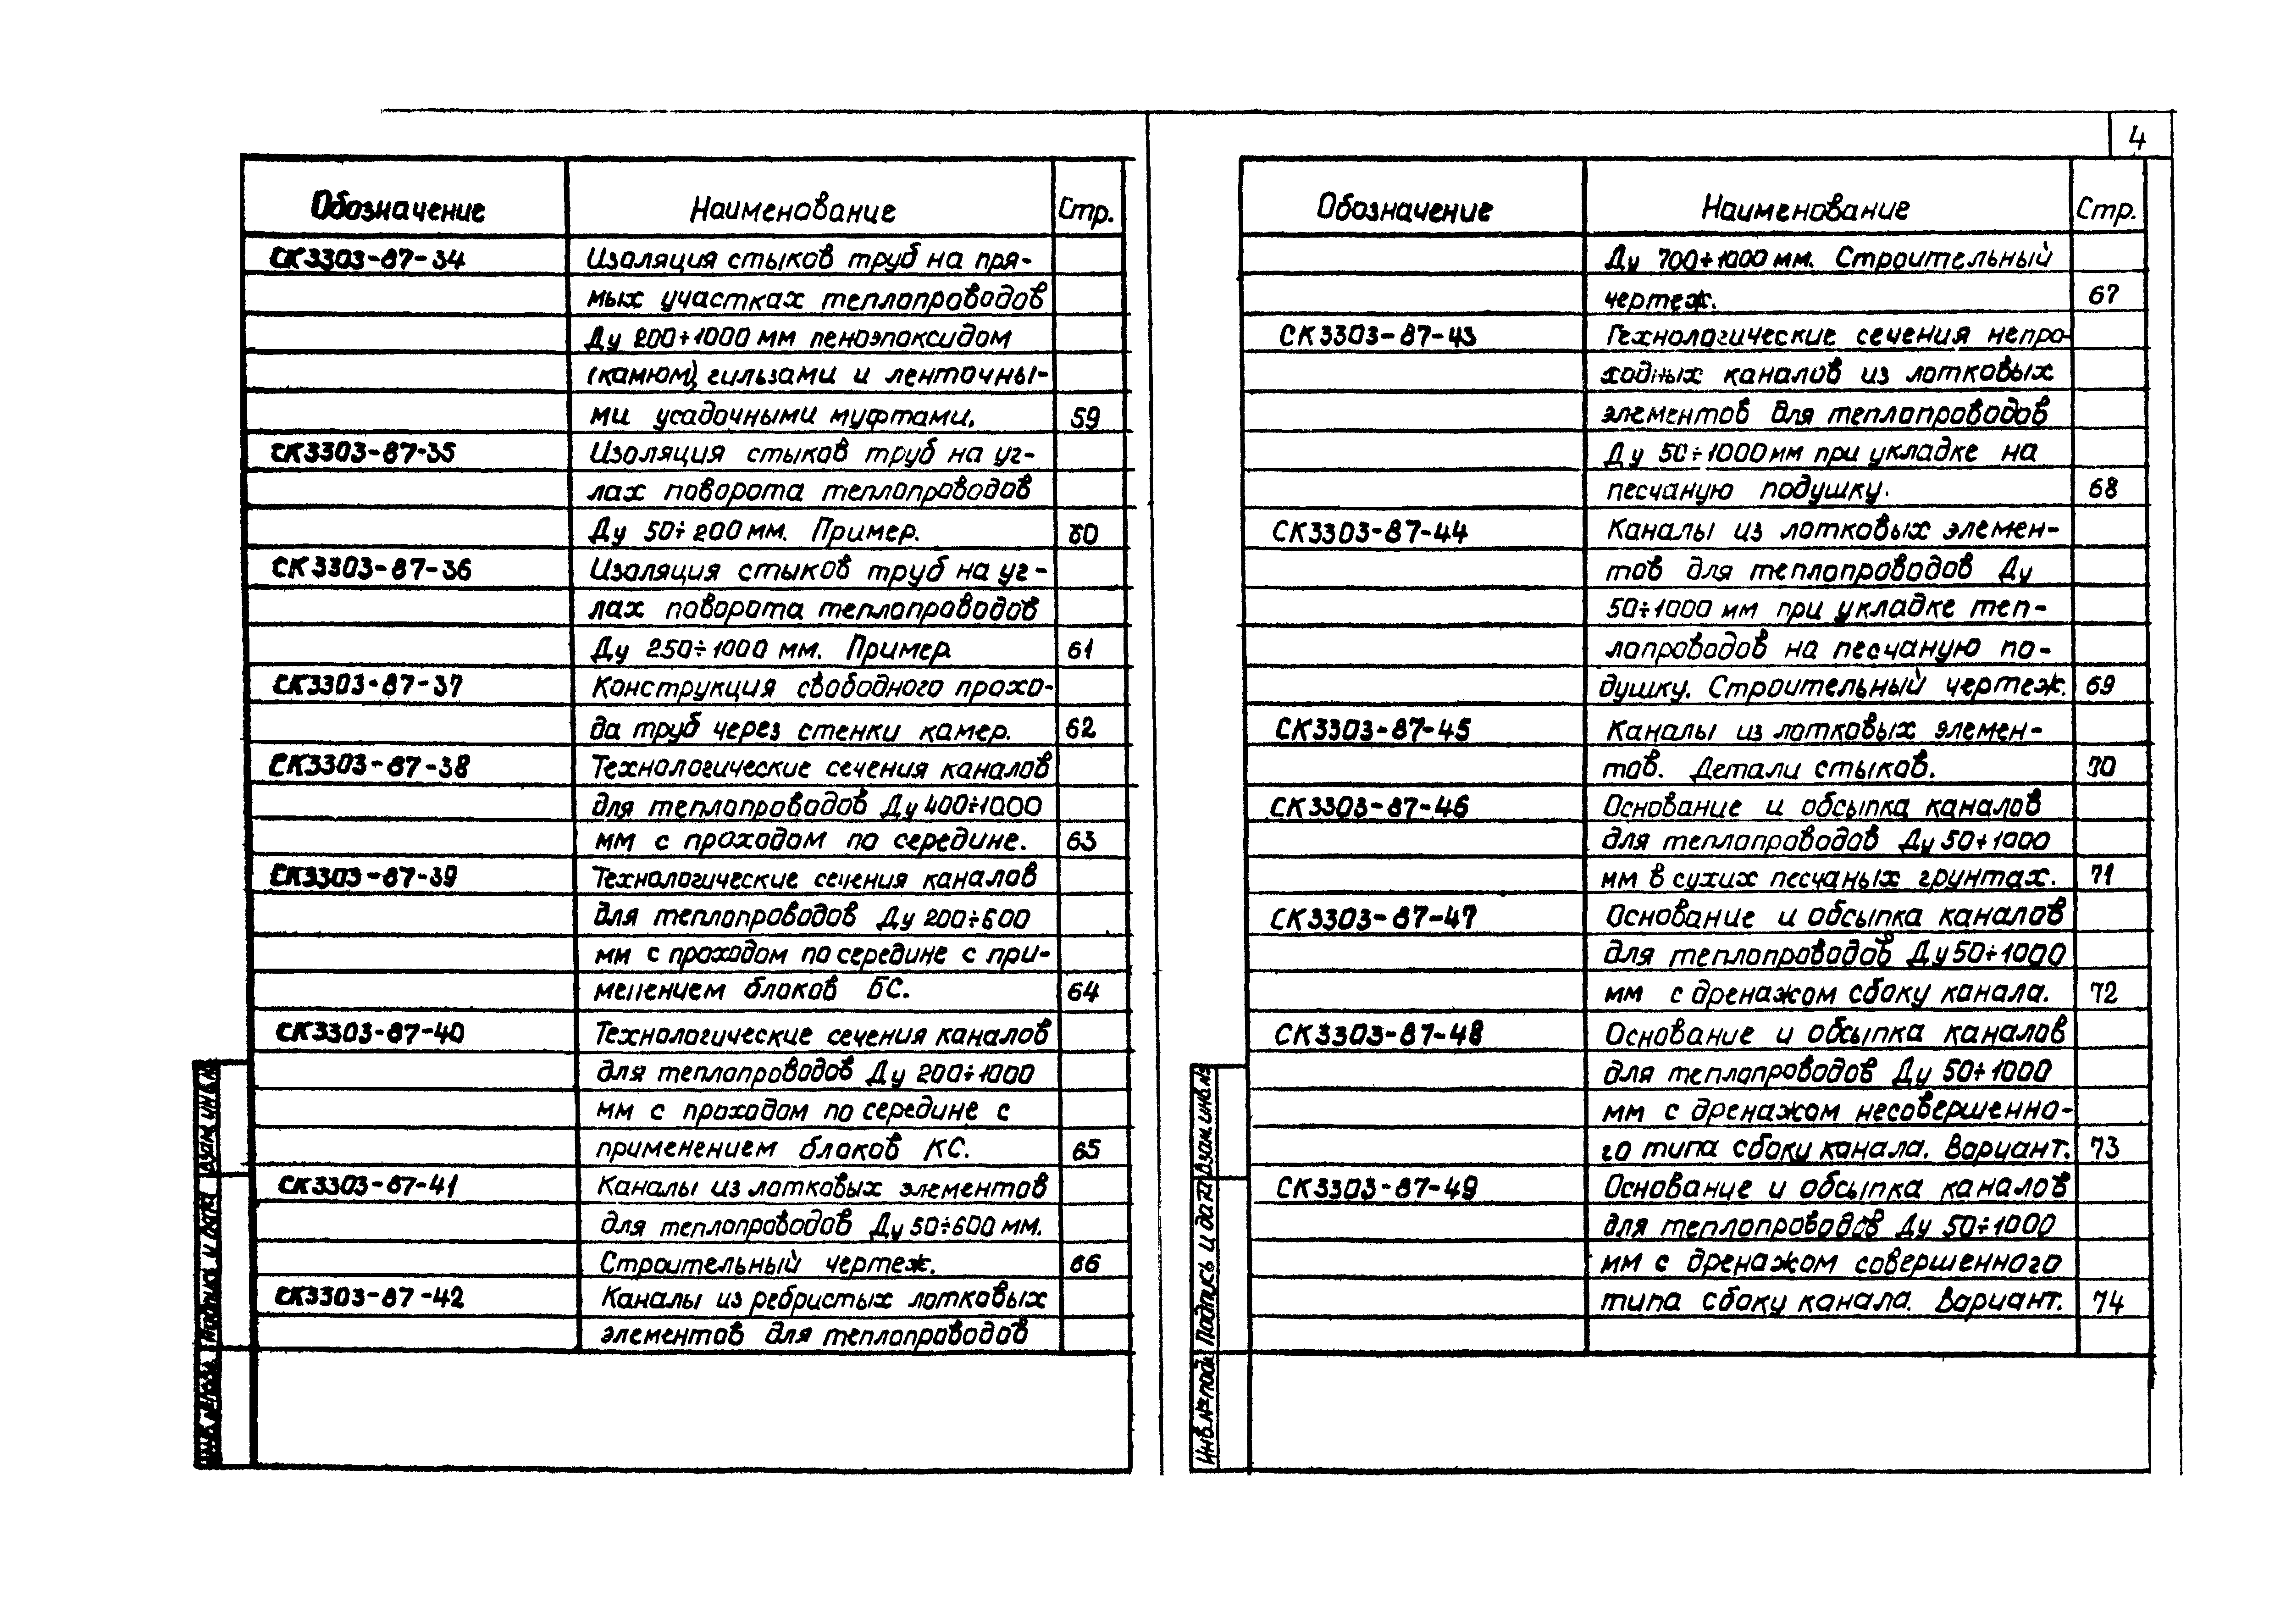 4
Обозначение Наименование Стр.
СК3303-87-34 Изоляция стыков труб на пря-
мых участках теплопроводов
Ду 200÷1000 мм пеноэпоксидом
(камюм), гильзами и ленточны-
ми усадочными муфтами. 59
СК3303-87-35 Изоляция стыков труб на уг-
лах поворота теплопроводов
Ду 50÷200 мм. Пример. 60
СК3303-87-36 Изоляция стыков труб на уг-
лах поворота теплопроводов
Ду 250÷1000 мм. Пример 61
СК3303-87-37 Конструкция свободного прохо-
да труб через стенки камер. 62
СК3303-87-38 Технологические сечения каналов
для теплопроводов Ду 400÷1000
мм с проходом по середине. 63
СК3303-87-39 Технологические сечения каналов
для теплопроводов Ду 200÷600
мм с проходом по середине с при-
менением блоков БС. 64
СК3303-87-40 Технологические сечения каналов
для теплопроводов Ду 200÷1000
мм с проходом по середине с
применением блоков КС. 65
СК3303-87-41 Каналы из лотковых элементов
для теплопроводов Ду 50÷600 мм.
Строительный чертеж. 66
СК3303-87-42 Каналы из ребристых лотковых
элементов для теплопроводов
Инв. № подл. Подпись и дата Взам. инв. №
Обозначение Наименование Стр.
Ду 700÷1000 мм. Строительный
чертеж. 67
СК3303-87-43 Технологические сечения непро-
ходных каналов из лотковых
элементов для теплопроводов
Ду 50÷1000 мм при укладке на
песчаную подушку. 68
СК3303-87-44 Каналы из лотковых элемен-
тов для теплопроводов Ду
50÷1000 мм при укладке теп-
лопроводов на песчаную по-
душку. Строительный чертеж. 69
СК3303-87-45 Каналы из лотковых элемен-
тов. Детали стыков. 70
СК3303-87-46 Основание и обсыпка каналов
для теплопроводов Ду 50÷1000
мм в сухих песчаных грунтах. 71
СК3303-87-47 Основание и обсыпка каналов
для теплопроводов Ду 50÷1000
мм с дренажом сбоку канала. 72
СК3303-87-48 Основание и обсыпка каналов
для теплопроводов Ду 50÷1000
мм с дренажом несовершенно-
го типа сбоку канала. Вариант. 73
СК3303-87-49 Основание и обсыпка каналов
для теплопроводов Ду 50÷1000
мм с дренажом совершенного
типа сбоку канала. Вариант. 74
Инв. № подл Подпись и дата Взам. инв. №